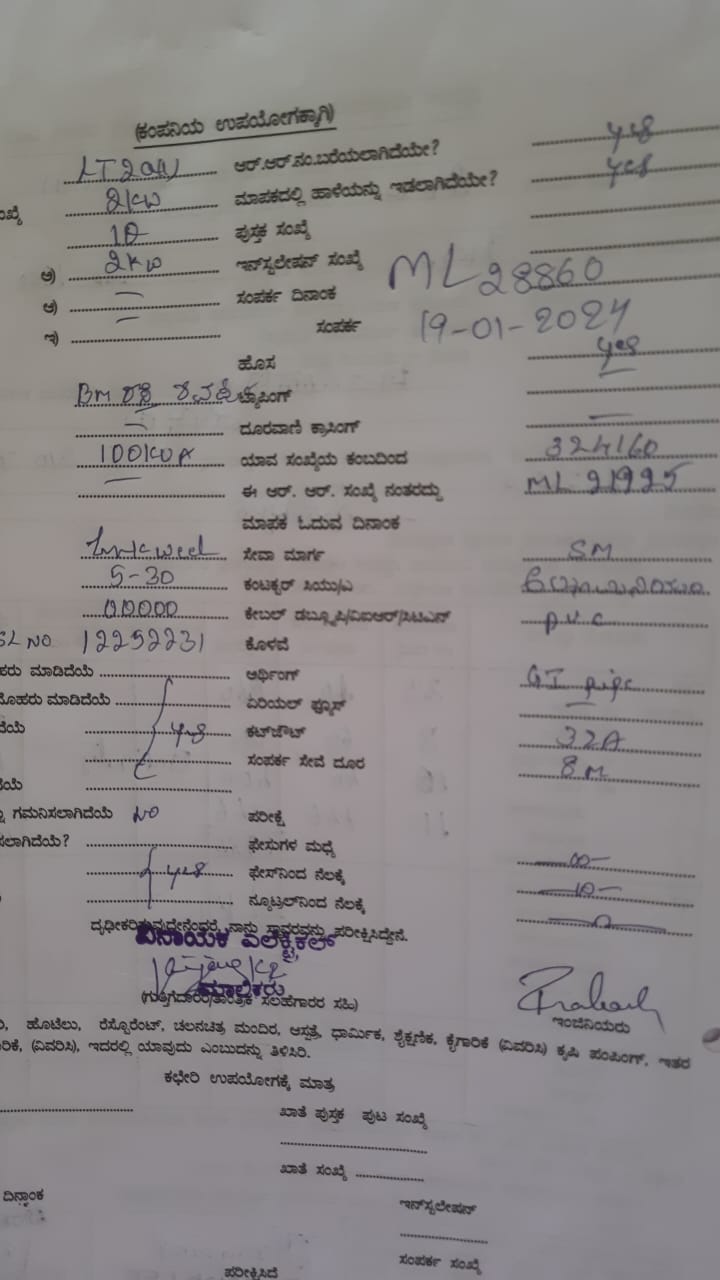 (ಕಂಪನಿಯ ಉಪಯೋಗಕ್ಕಾಗಿ)
ಆರ್.ಆರ್.ನಂ.ಬರೆಯಲಾಗಿದೆಯೇ? yes
2KW ಮಾಪಕದಲ್ಲಿ ಹಾಳೆಯನ್ನು ಇಡಲಾಗಿದೆಯೇ? yes
ಪುಸ್ತಕ ಸಂಖ್ಯೆ
ಅ) 2KW ಇನ್‌ಸ್ಟಲೇಷನ್ ಸಂಖ್ಯೆ ML 28860
ಆ) ಸಂಪರ್ಕ ದಿನಾಂಕ
ಇ) ಸಂಪರ್ಕ 19-01-2024
ಹೊಸ yes
BM ಟ್ಯಾಪಿಂಗ್
ದೂರವಾಣಿ ಕ್ರಾಸಿಂಗ್
100KVA ಯಾವ ಸಂಖ್ಯೆಯ ಕಂಬದಿಂದ 324160
ಈ ಆರ್. ಆರ್. ಸಂಖ್ಯೆ ನಂತರದ್ದು ML 21925
ಮಾಪಕ ಓದುವ ದಿನಾಂಕ
ಸೇವಾ ಮಾರ್ಗ SM
5-30 ಕಂಟಕ್ಟರ್ ಸಿಯು/ಎ
00000 ಕೇಬಲ್ ಡಬ್ಲ್ಯೂಪಿ/ವಿಐಆರ್/ಸಿಟಿಎಸ್ P.V.C
SL NO 12252231 ಕೊಳವೆ
ಹರು ಮಾಡಿದೆಯೆ ಆರ್ಥಿಂಗ್ GI pipe
ಮೊಹರು ಮಾಡಿದೆಯೆ ಏರಿಯಲ್ ಫ್ಯೂಸ್
yes ಕಟ್‌ಔಟ್ 32A
ಸಂಪರ್ಕ ಸೇವೆ ದೂರ 8M
ಗಮನಿಸಲಾಗಿದೆಯೆ NO ಪರೀಕ್ಷೆ
ಸಲಾಗಿದೆಯೆ? ಫೇಸುಗಳ ಮಧ್ಯೆ
yes ಫೇಸ್‌ನಿಂದ ನೆಲಕ್ಕೆ
ನ್ಯೂಟ್ರಲ್‌ನಿಂದ ನೆಲಕ್ಕೆ
ದೃಢೀಕರಿಸುವುದೇನೆಂದರೆ, ನಾನು ಸ್ಥಾವರವನ್ನು ಪರೀಕ್ಷಿಸಿದ್ದೇನೆ.
ವಿನಾಯಕ ಎಲೆಕ್ಟ್ರಿಕಲ್
ಮಾಲೀಕರು
(ಗುತ್ತಿಗೆದಾರರ/ತಾಂತ್ರಿಕ ಸಲಹೆಗಾರರ ಸಹಿ)
ಇಂಜಿನಿಯರು
ಹೊಟೆಲು, ರೆಸ್ಟೊರೆಂಟ್, ಚಲನಚಿತ್ರ ಮಂದಿರ, ಆಸ್ಪತ್ರೆ, ಧಾರ್ಮಿಕ, ಶೈಕ್ಷಣಿಕ, ಕೈಗಾರಿಕೆ (ವಿವರಿಸಿ) ಕೃಷಿ ಪಂಪಿಂಗ್, ಇತರ
ರಿಕೆ, (ವಿವರಿಸಿ), ಇದರಲ್ಲಿ ಯಾವುದು ಎಂಬುದನ್ನು ತಿಳಿಸಿರಿ.
ಕಛೇರಿ ಉಪಯೋಗಕ್ಕೆ ಮಾತ್ರ
ಖಾತೆ ಪುಸ್ತಕ ಪುಟ ಸಂಖ್ಯೆ
ಖಾತೆ ಸಂಖ್ಯೆ
ದಿನಾಂಕ
ಇನ್‌ಸ್ಟಲೇಷನ್
ಸಂಪರ್ಕ ಸಂಖ್ಯೆ
ಪರೀಕ್ಷಿಸಿದೆ